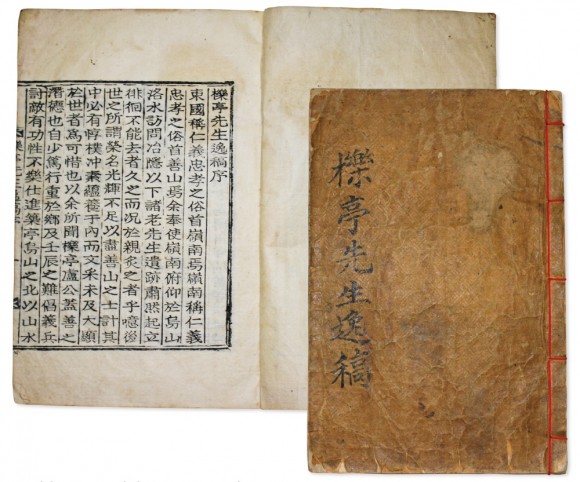 櫟亭先生逸稿序
東國稱仁義忠孝之俗首嶺南焉嶺南稱仁義
忠孝之俗首善山焉余奉使嶺南俯仰於烏山
洛水訪問冶隱以下諸老先生遺跡肅然起立
徘徊不能去者久之而況於親炙之者乎噫後
世之所謂榮名光輝不足以盡善山之士計其
中必有惇樸冲素蘊養于內而文采未及大顯
於世者爲可惜也以余所聞櫟亭盧公蓋善之
潛德也自少篤行重於鄉及壬辰之難倡義兵
討敵有功性不樂仕進築亭烏山之北以山水
櫟亭先生逸稿